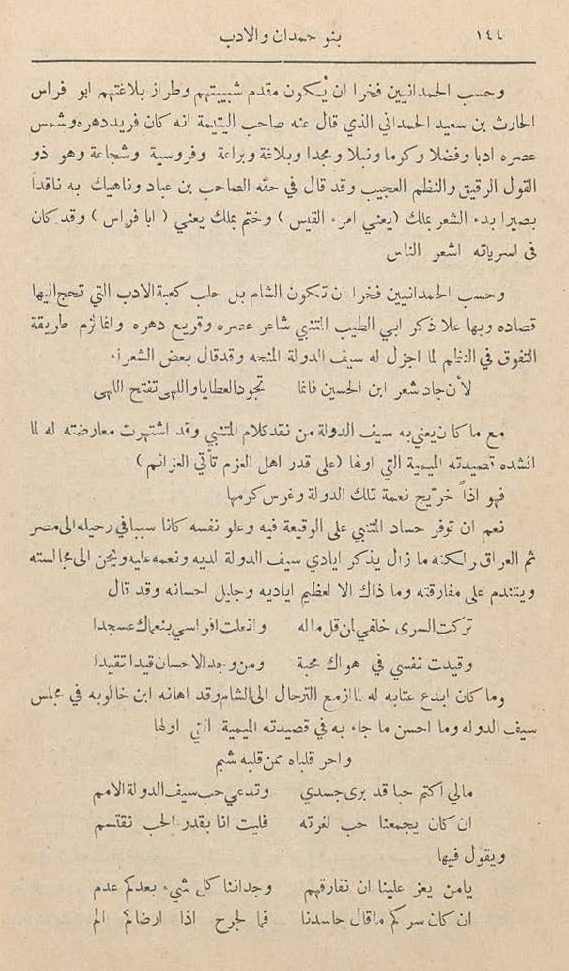 ١٤٤ بنو حمدان والادب
وحسب الحمدانيين فخرا ان يكون مقدم شبيبتهم وطراز بلاغتهم ابو فراس
الحارث بن سعيد الحمداني الذي قال عنه صاحب اليتيمة انه كان فريد دهره وشمس
عصره ادبا وفضلا وكرما ونبلا ومجدا وبلاغة وبراعة وفروسية وشجاعة وهو ذو
القول الرقيق والنظم العجيب وقد قال في حقه الصاحب بن عباد وناهيك به ناقداً
بصيرا بدء الشعر بملك (يعني امرء القيس) وختم بملك يعني (ابا فراس) وقد كان
في اسرياته اشعر الناس
وحسب الحمدانيين فخرا ان تكون الشام بل حلب كعبة الادب التي تحج اليها
قصاده وبها علا ذكر ابي الطيب المتنبي شاعر عصره وقريع دهره وانما لزم طريقة
التفوق في النظم لما اجزل له سيف الدولة المنحه وقد قال بعض الشعراء
لأن جاد شعر ابن الحسين فانما تجود العطايا واللهى تفتح اللهى
مع ما كان يعني به سيف الدولة من نقد كلام المتنبي وقد اشتهرت معارضته له لما
انشده قصيدته الميمية التي اولها (على قدر اهل العزم تأتي العزائم)
فهو اذاً خرّيج نعمة تلك الدولة وغرس كرمها
نعم ان توفر حساد المتنبي على الوقيعة فيه وعلو نفسه كانا سببا في رحيله الى مصر
ثم العراق ولكنه ما زال يذكر ايادي سيف الدولة لديه ونعمه عليه ويحن الى مجالسته
ويتندم على مفارقته وما ذاك الا لعظيم اياديه وجليل احسانه وقد قال
تركت السرى خلفي ان قل ماله وانعلت افراسي بنعماك عسجدا
وقيدت نفسي في هواك محبة ومن وجد الاحسان قيدا تقيدا
وما كان ابدع عتابه له لما ازمع الترحال الى الشام وقد اهانه ابن خالويه في مجلس
سيف الدوله وما احسن ما جاء به في قصيدته الميمية التي اولها
واحر قلباه ممن قلبه شبم
مالي اكتم حبا قد برى جسدي وتدعي حب سيف الدولة الامم
ان كان يجمعنا حب لغرته فليت انا بقدر الحب نقتسم
ويقول فيها
يامن يعز علينا ان نفارقهم وجداننا كل شيء بعدكم عدم
ان كان سركم ما قال حاسدنا فما لجرح اذا ارضاكم الم